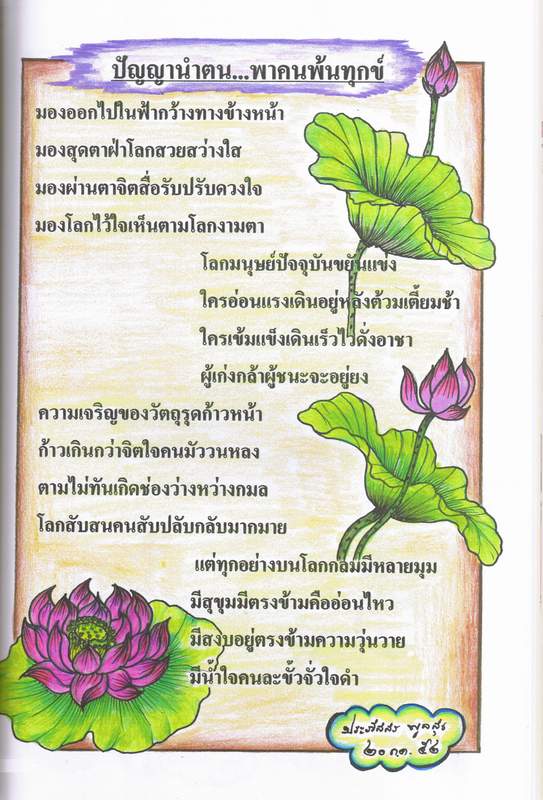 ปัญญานำตน...พาคนพ้นทุกข์
มองออกไปในฟ้ากว้างทางข้างหน้า
มองสุดตาฝ่าโลกสวยสว่างใส
มองผ่านตาจิตสื่อรับปรับดวงใจ
มองโลกไว้ใจเห็นตามโลกงามตา
โลกมนุษย์ปัจจุบันขยันแข่ง
ใครอ่อนแรงเดินอยู่หลังต้วมเตี้ยมช้า
ใครเข้มแข็งเดินเร็วไวดั่งอาชา
ผู้เก่งกล้าผู้ชนะจะอยู่ยง
ความเจริญของวัตถุรุดก้าวหน้า
ก้าวเกินกว่าจิตใจคนมัววนหลง
ตามไม่ทันเกิดช่องว่างหว่างกมล
โลกสับสนคนสับปลับกลับมากมาย
แต่ทุกอย่างบนโลกกลมมีหลายมุม
มีสุขุมมีตรงข้ามคืออ่อนไหว
มีสงบอยู่ตรงข้ามความวุ่นวาย
มีน้ำใจคนละขั้วจั่วใจดำ
ประภัสสร
๒๐ ก.ค. ๕๔